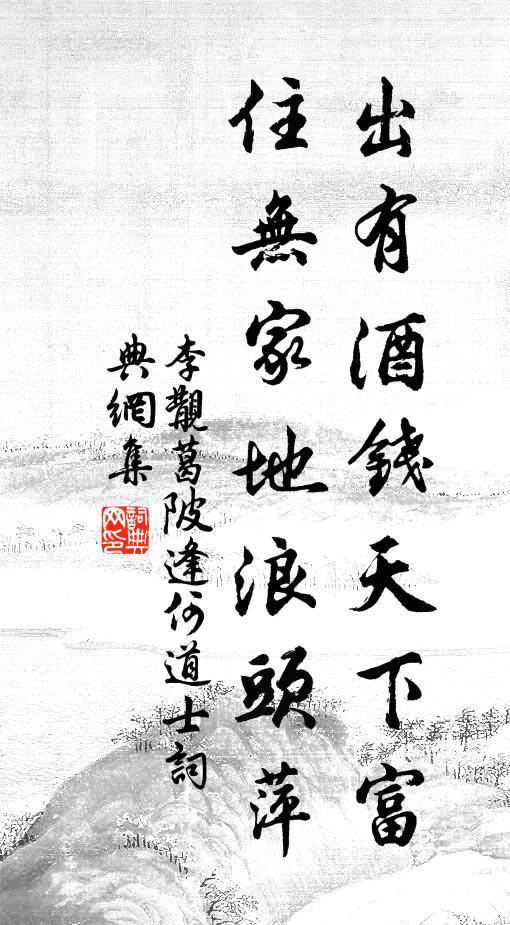 出有酒錢天下富
住無家地浪頭萍
李觀葛陂逢何道士詞
典網集
詞典
网印